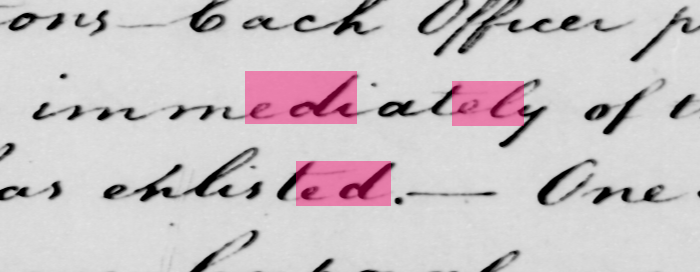 ons — Each Officer
immediately of
as enlisted. — One